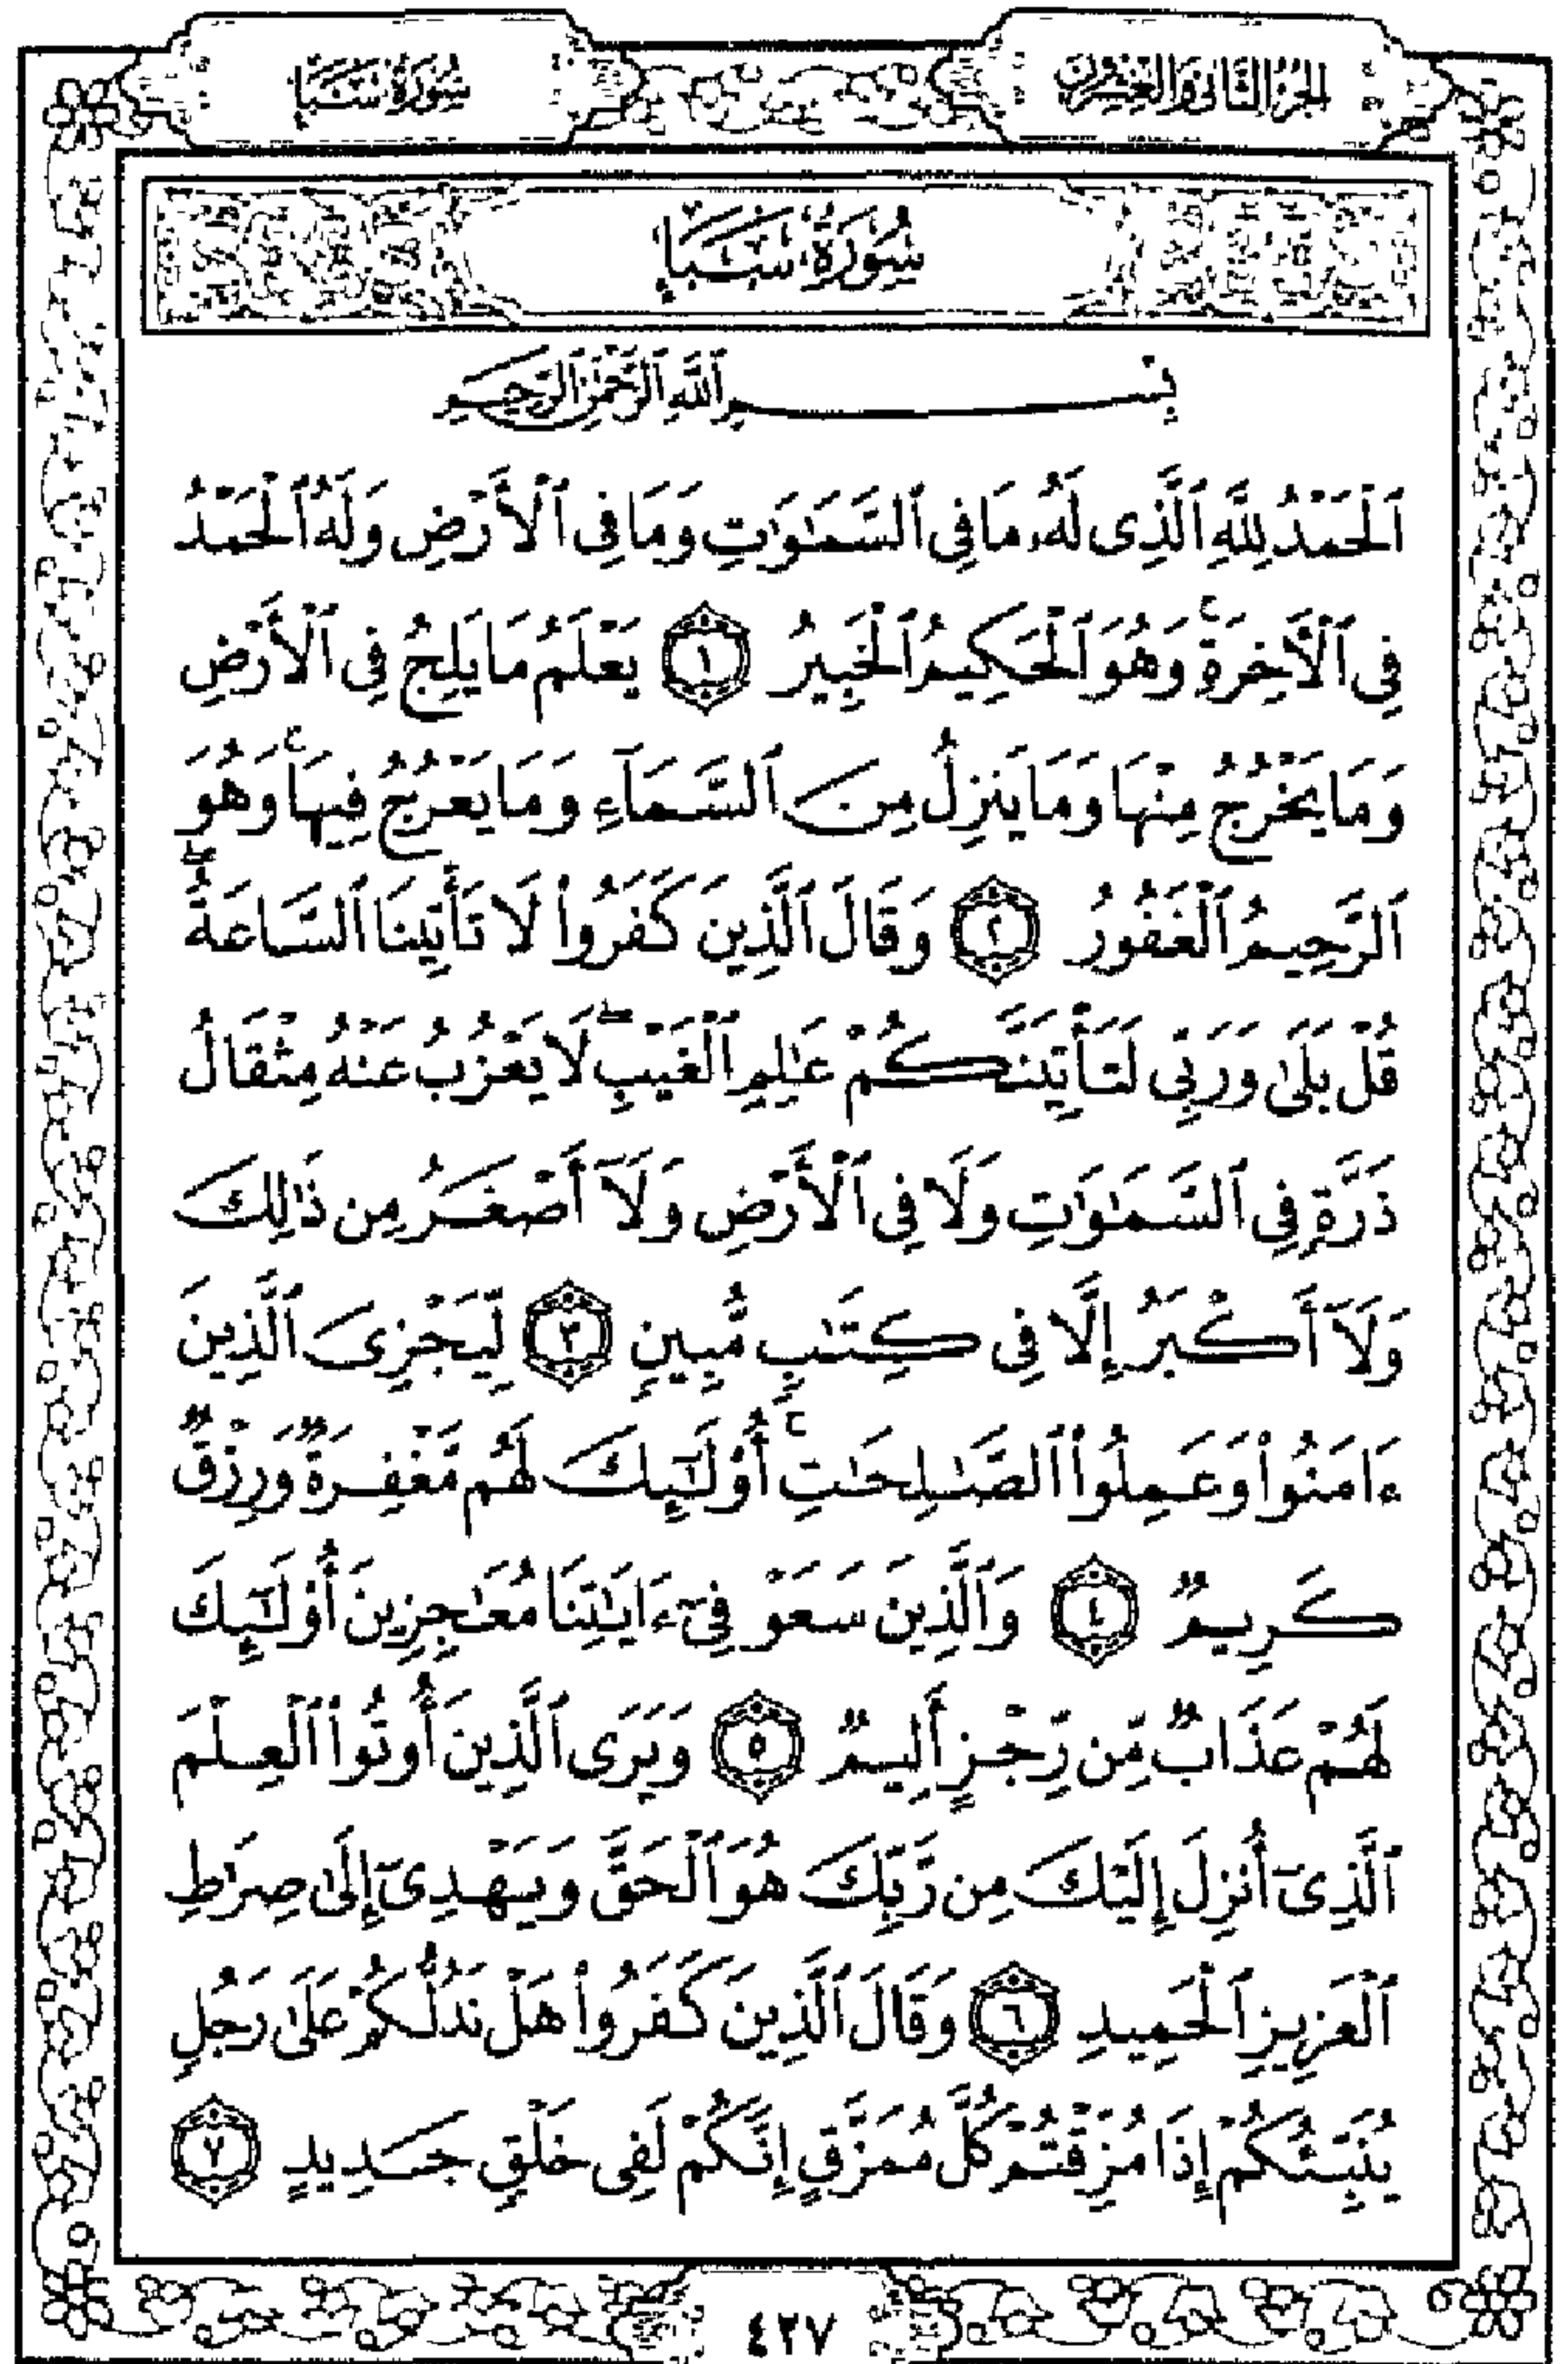 الجزء الثاني والعشرون
سورة سبأ
سُورَةُ سَبَإٍ
بِسْمِ ٱللَّهِ ٱلرَّحْمَٰنِ ٱلرَّحِيمِ
ٱلْحَمْدُ لِلَّهِ ٱلَّذِى لَهُۥ مَا فِى ٱلسَّمَٰوَٰتِ وَمَا فِى ٱلْأَرْضِ وَلَهُ ٱلْحَمْدُ
فِى ٱلْأَخِرَةِ ۚ وَهُوَ ٱلْحَكِيمُ ٱلْخَبِيرُ ١ يَعْلَمُ مَا يَلِجُ فِى ٱلْأَرْضِ
وَمَا يَخْرُجُ مِنْهَا وَمَا يَنزِلُ مِنَ ٱلسَّمَآءِ وَمَا يَعْرُجُ فِيهَا ۚ وَهُوَ
ٱلرَّحِيمُ ٱلْغَفُورُ ٢ وَقَالَ ٱلَّذِينَ كَفَرُوا۟ لَا تَأْتِينَا ٱلسَّاعَةُ ۖ
قُلْ بَلَىٰ وَرَبِّى لَتَأْتِيَنَّكُمْ عَٰلِمِ ٱلْغَيْبِ ۖ لَا يَعْزُبُ عَنْهُ مِثْقَالُ
ذَرَّةٍ فِى ٱلسَّمَٰوَٰتِ وَلَا فِى ٱلْأَرْضِ وَلَآ أَصْغَرُ مِن ذَٰلِكَ
وَلَآ أَكْبَرُ إِلَّا فِى كِتَٰبٍ مُّبِينٍ ٣ لِّيَجْزِىَ ٱلَّذِينَ
ءَامَنُوا۟ وَعَمِلُوا۟ ٱلصَّٰلِحَٰتِ ۚ أُو۟لَٰٓئِكَ لَهُم مَّغْفِرَةٌ وَرِزْقٌ
كَرِيمٌ ٤ وَٱلَّذِينَ سَعَوْ فِىٓ ءَايَٰتِنَا مُعَٰجِزِينَ أُو۟لَٰٓئِكَ
لَهُمْ عَذَابٌ مِّن رِّجْزٍ أَلِيمٌ ٥ وَيَرَى ٱلَّذِينَ أُوتُوا۟ ٱلْعِلْمَ
ٱلَّذِىٓ أُنزِلَ إِلَيْكَ مِن رَّبِّكَ هُوَ ٱلْحَقَّ وَيَهْدِىٓ إِلَىٰ صِرَٰطِ
ٱلْعَزِيزِ ٱلْحَمِيدِ ٦ وَقَالَ ٱلَّذِينَ كَفَرُوا۟ هَلْ نَدُلُّكُمْ عَلَىٰ رَجُلٍ
يُنَبِّئُكُمْ إِذَا مُزِّقْتُمْ كُلَّ مُمَزَّقٍ إِنَّكُمْ لَفِى خَلْقٍ جَدِيدٍ ٧
٤٢٧